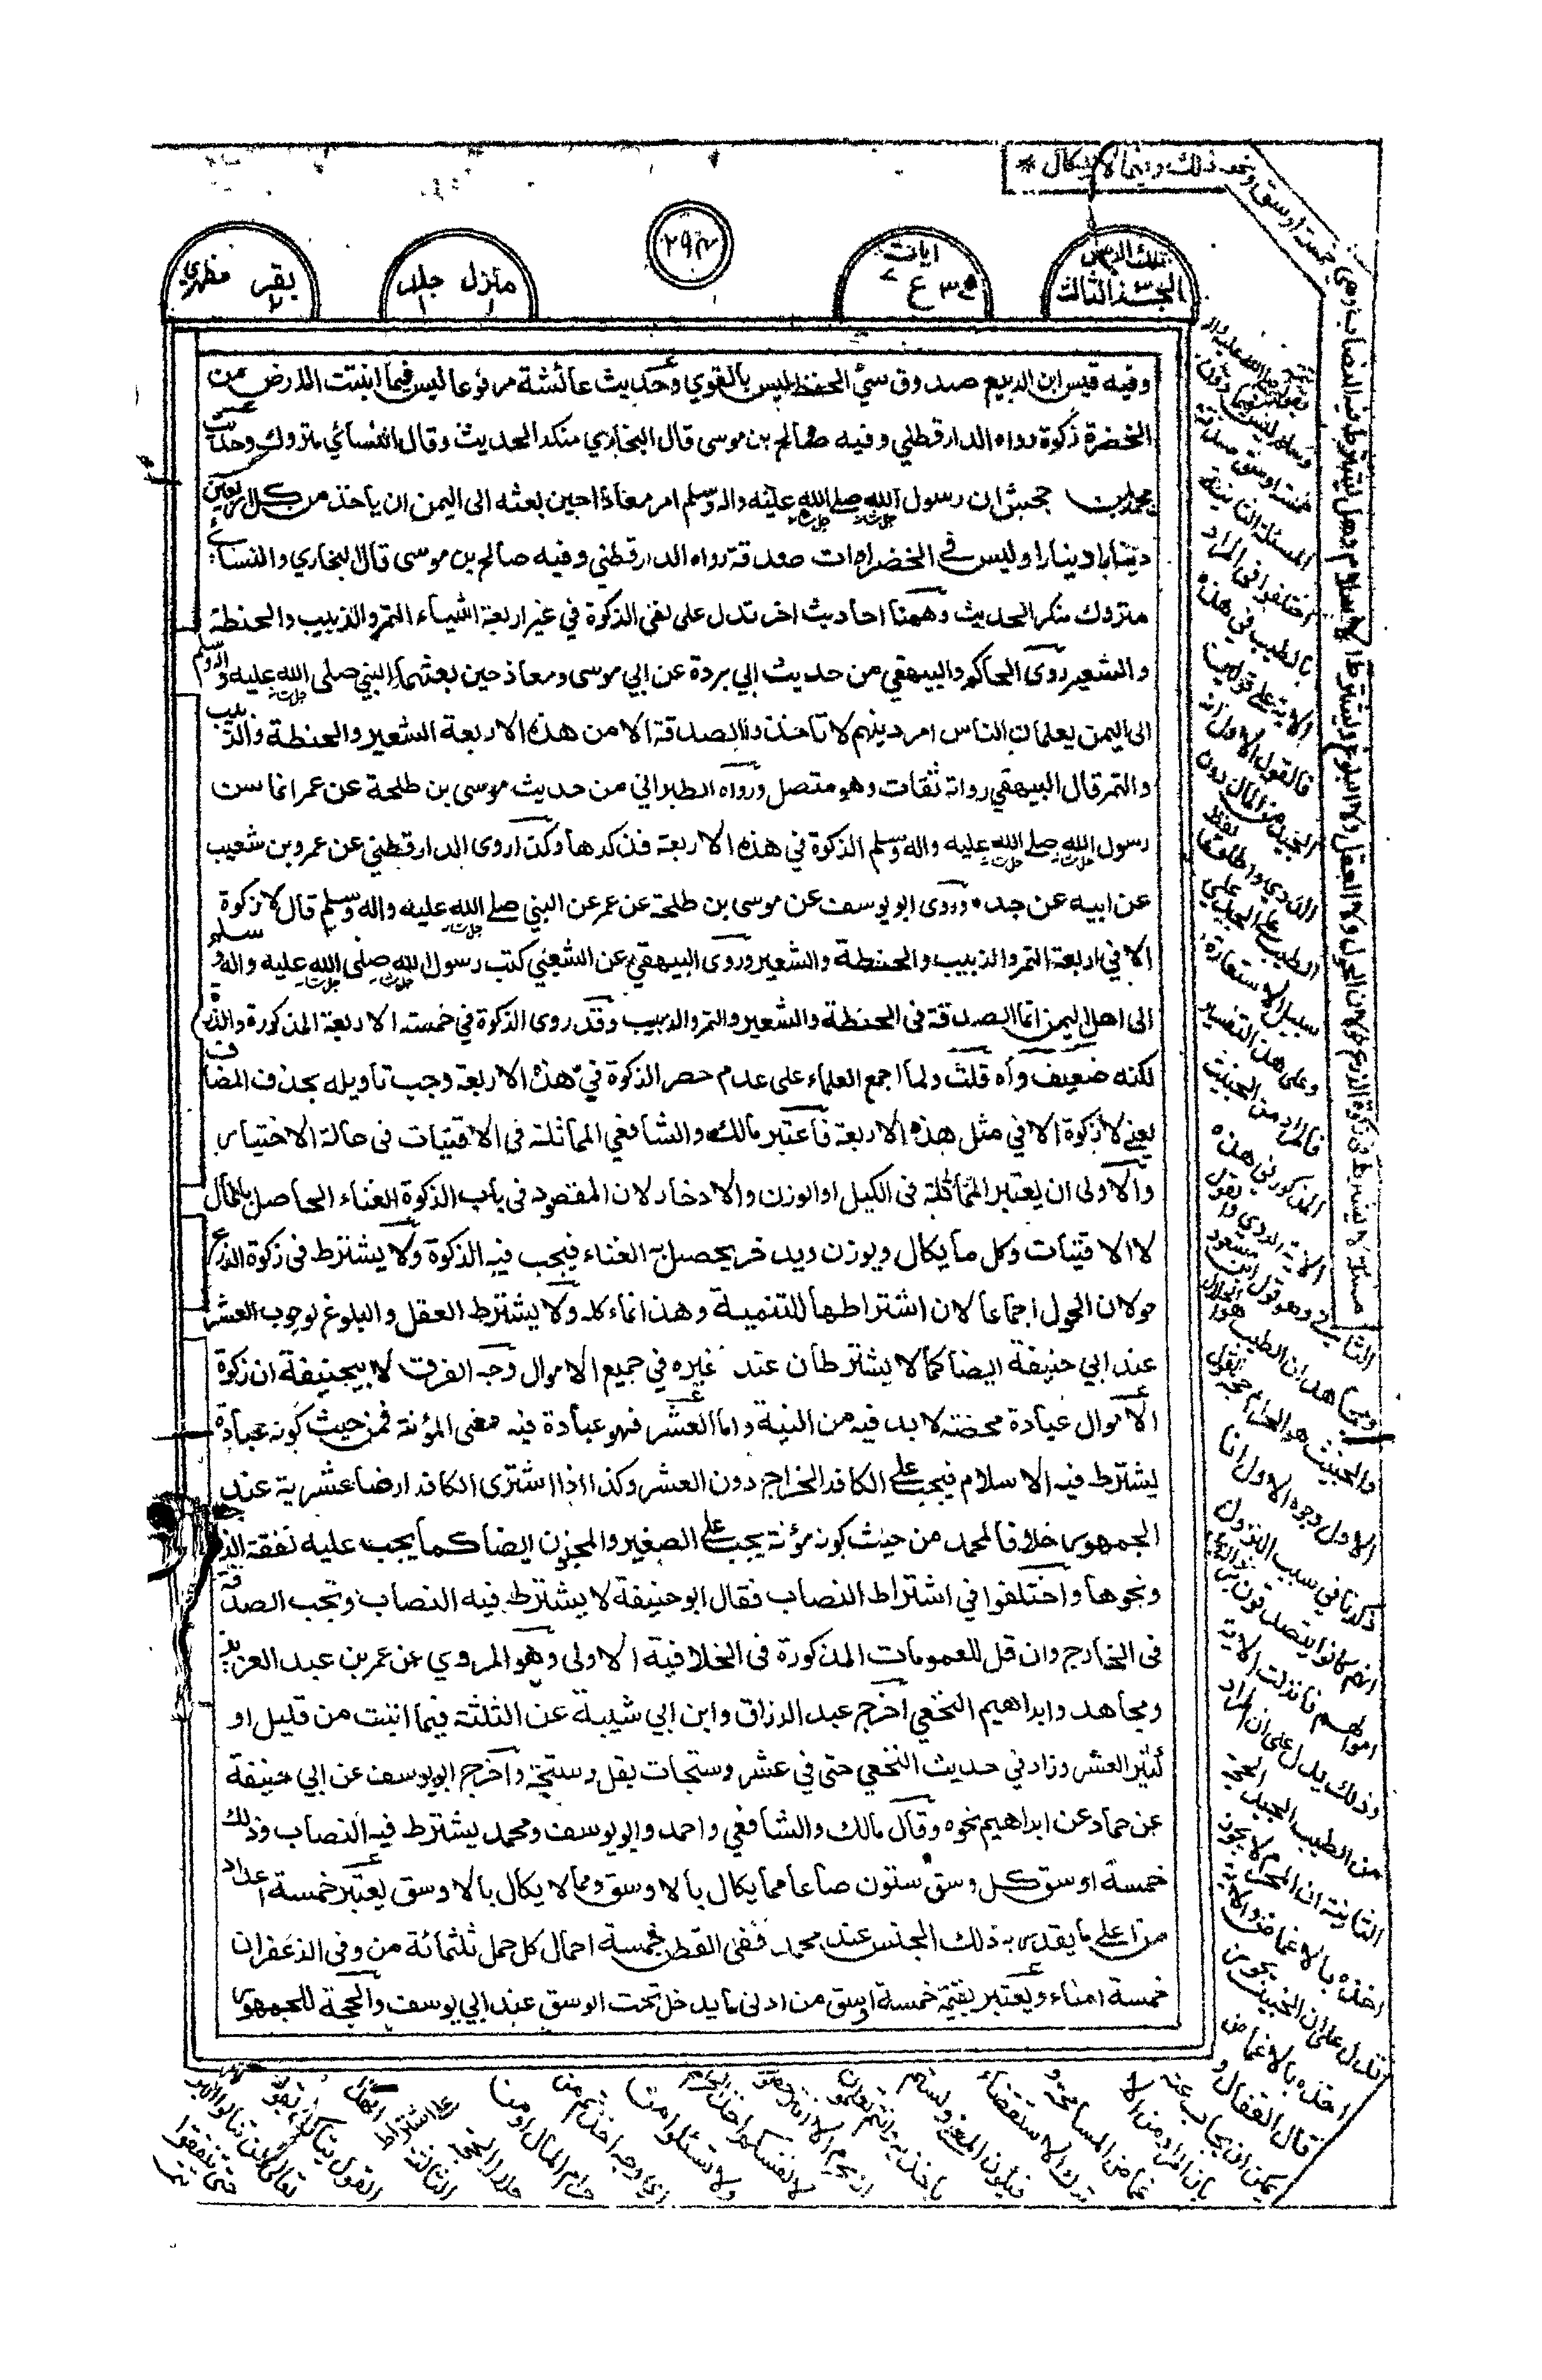 ونحو ذلك وفيما لا يكال *
تلك الرسل
الجزء الثالث
ايات
ع ٣
٢٩٠
منزل جلد
١ ١
بقر مظهري
٢
وفيه قيس ابن الربيع صدوق سيئ الحفظ ليس بالقوي وحديث عائشة مرفوعا ليس فيما انبتت الارض من
الخضرة زكوة رواه الدارقطني وفيه صالح بن موسى قال البخاري منكر الحديث وقال النسائي متروك وحديث
محمد بن جحش ان رسول الله صلى الله عليه واله وسلم امر معاذا حين بعثه الى اليمن ان ياخذ من كل اربعين
دينارا دينارا وليس في الخضراوات صدقة رواه الدارقطني وفيه صالح بن موسى قال البخاري والنسائي
متروك منكر الحديث وههنا احاديث اخر تدل على نفي الزكوة في غير اربعة اشياء التمر والزبيب والحنطة
والشعير روى الحاكم والبيهقي من حديث ابي بردة عن ابي موسى ومعاذ حين بعثهما النبي صلى الله عليه واله وسلم
الى اليمن يعلمان الناس امر دينهم لا تاخذوا الصدقة الا من هذه الاربعة الشعير والحنطة والزبيب
والتمر قال البيهقي رواته ثقات وهو متصل ورواه الطبراني من حديث موسى بن طلحة عن عمر انما سن
رسول الله صلى الله عليه واله وسلم الزكوة في هذه الاربعة فذكرها وكذا روى الدارقطني عن عمرو بن شعيب
عن ابيه عن جده وروى ابو يوسف عن موسى بن طلحة عن عمر عن النبي صلى الله عليه واله وسلم قال لا زكوة
الا في اربعة التمر والزبيب والحنطة والشعير وروى البيهقي عن الشعبي كتب رسول الله صلى الله عليه واله وسلم
الى اهل اليمن انما الصدقة في الحنطة والشعير والتمر والزبيب وقد روى الزكوة في خمسة الاربعة المذكورة والذرة
لكنه ضعيف واه قلت ولما اجمع العلماء على عدم حصر الزكوة في هذه الاربعة وجب تاويله بحذف المضاف
يعني لا زكوة الا في مثل هذه الاربعة فاعتبر مالك والشافعي المماثلة في الاقتيات في حالة الاختيار
والاولى ان يعتبر المماثلة في الكيل او الوزن والادخار لان المقصود في باب الزكوة الغناء الحاصل بالمال
لا الاقتيات وكل ما يكال ويوزن ويدخر يحصل به الغناء فيجب فيه الزكوة ولا يشترط في زكوة الزرع
حولان الحول اجماعا لان اشتراطها للتنمية وهذا نماء كله ولا يشترط العقل والبلوغ لوجوب العشر
عند ابي حنيفة ايضا كما لا يشترطان عند غيره في جميع الاموال وجه الفرق لابيحنيفة ان زكوة
الاموال عبادة محضة لا بد فيه من النية واما العشر فهو عبادة فيه معنى المؤنة فمن حيث كونه عبادة
يشترط فيه الاسلام فيجب على الكافر الخراج دون العشر وكذا اذا اشترى الكافر ارضا عشرية عند
الجمهور خلافا لمحمد من حيث كونه مؤنة يجب على الصغير والمجنون ايضا كما يجب عليه نفقة الزوجة
ونحوها واختلفوا في اشتراط النصاب فقال ابو حنيفة لا يشترط فيه النصاب وتجب الصدقة
في الخارج وان قل للعمومات المذكورة في الخلافية الاولى وهو المروي عن عمر بن عبد العزيز
ومجاهد وابراهيم النخعي اخرج عبد الرزاق وابن ابي شيبة عن الثلثة فيما انبتت من قليل او
كثير العشر وزاد في حديث النخعي حتى في عشر دستجات بقل دستجة واخرج ابو يوسف عن ابي حنيفة
عن حماد عن ابراهيم نحوه وقال مالك والشافعي واحمد وابو يوسف ومحمد يشترط فيه النصاب وذلك
خمسة اوسق كل وسق ستون صاعا مما يكال بالاوسق ومما لا يكال بالاوسق يعتبر خمسة اعداد
من اعلى ما يقدر به ذلك الجنس عند محمد ففي القطن خمسة احمال كل حمل ثلثمائة من وفي الزعفران
خمسة امناء ويعتبر بقيمة خمسة اوسق من ادنى ما يدخل تحت الوسق عند ابي يوسف والحجة للجمهور
خمسة اوسق صدقة
المسئلة الثانية
اختلفوا في المراد
بالطيب في هذه
الاية على قولين
فالقول الاول انه
الجيد من المال دون
الردي واطلاق لفظ
الطيب على الجيد على
سبيل الاستعارة
وعلى هذا التفسير
فالمراد من الخبيث
المذكور في هذه
الاية الردي والقول
الثاني وهو قول ابن مسعود
ومجاهد ان الطيب هو الحلال
والخبيث هو الحرام حجة القول
الاول وجوه الاول انا
ذكرنا في سبب النزول
انهم كانوا يتصدقون بردي
اموالهم فانزلت الاية
وذلك يدل على ان المراد
من الطيب الجيد الحجة
الثانية ان المحرم لا يجوز
اخذه بالاغماض والاية
تدل على ان الخبيث يجوز
اخذه بالاغماض
قال القفال و
يمكن ان يجاب عنه
بان المراد من الا
غماض المسامحة و
ترك الاستقصاء